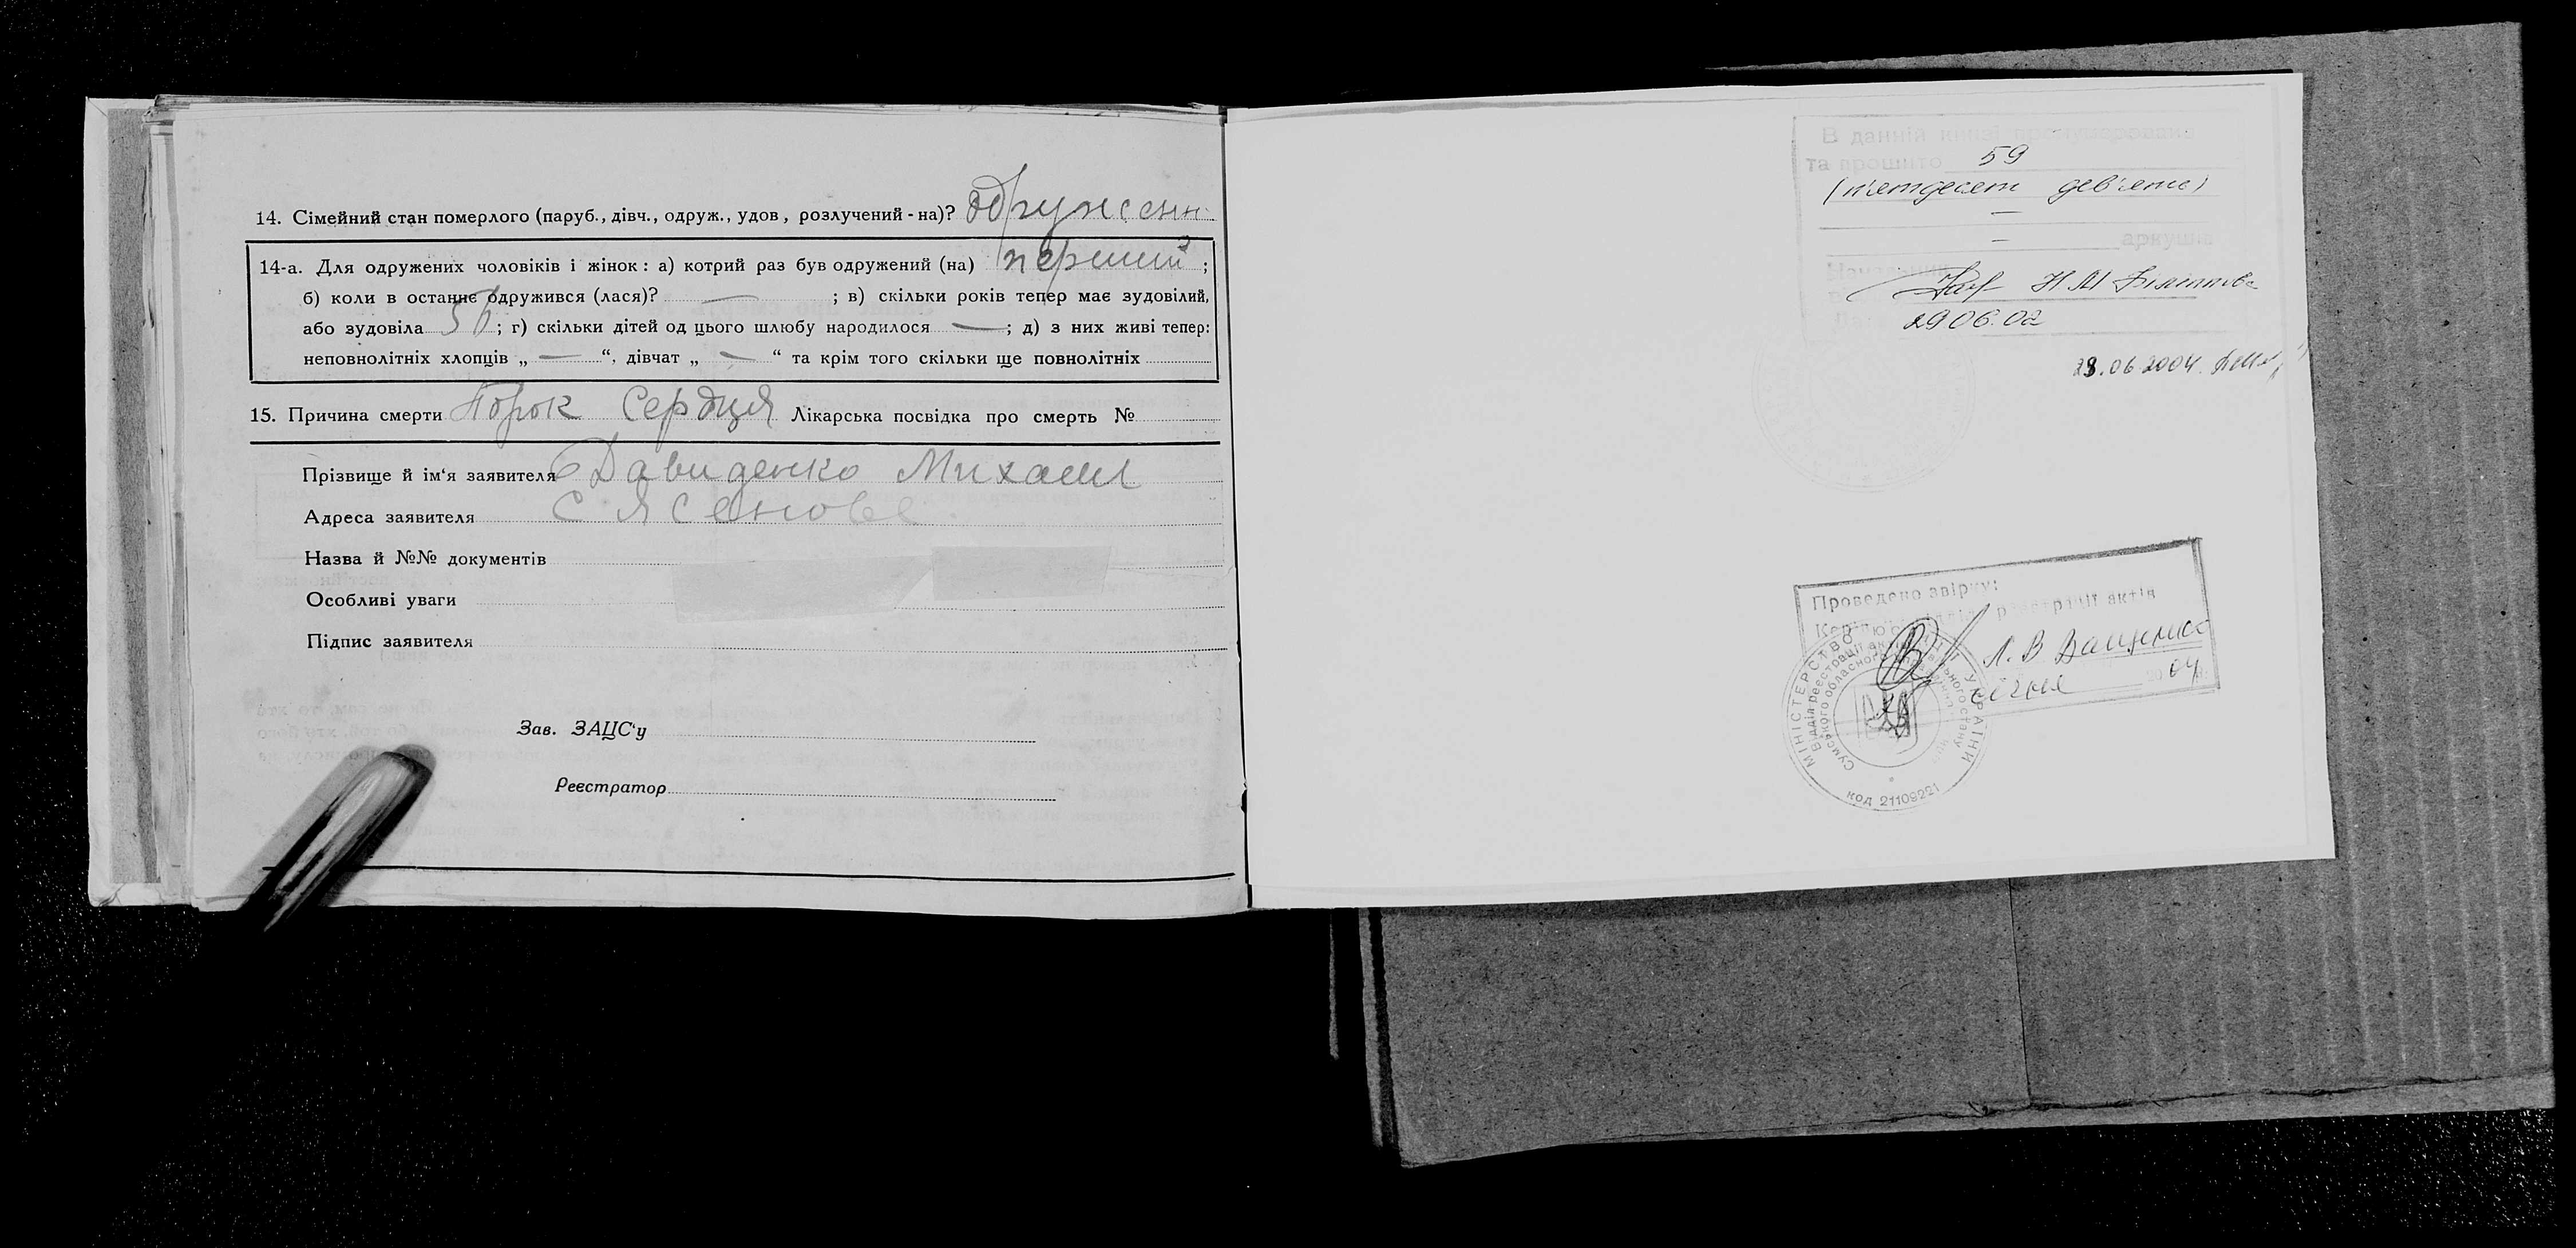 14. Сімейний стан померлого (паруб., дівч., одруж., удов, розлучений - на)? одружени
14-а. Для одружених чоловіків і жінок: а) котрий раз був одружений (на) перший ;
б) коли в останнє одружився (лася)? — ; в) скільки років тепер має зудовілий,
або зудовіла 56 ; г) скільки дітей од цього шлюбу народилося — ; д) з них живі тепер:
неповнолітніх хлопців „ — “, дівчат „ — “ та крім того скільки ще повнолітніх
15. Причина смерти Порок Сердця Лікарська посвідка про смерть №
Прізвище й ім‘я заявителя Давиденко Михаил
Адреса заявителя С Ясенове
Назва й №№ документів
Особливі уваги
Підпис заявителя
Зав. ЗАЦС‘у
Реєстратор
В данній книзі пронумеровано
та прошито 59
(п'ятдесят дев'ять)
—
— аркушів
Н М
29 06.02
28.06 2004.
Проведено звірку:
реєстрації актів
Л. В Ващенко
січня 2004
МІНІСТЕРСТВО ЮСТИЦІЇ УКРАЇНИ
Відділ реєстрації актів цивільного стану
Сумського обласного управління юстиції
код 21109221